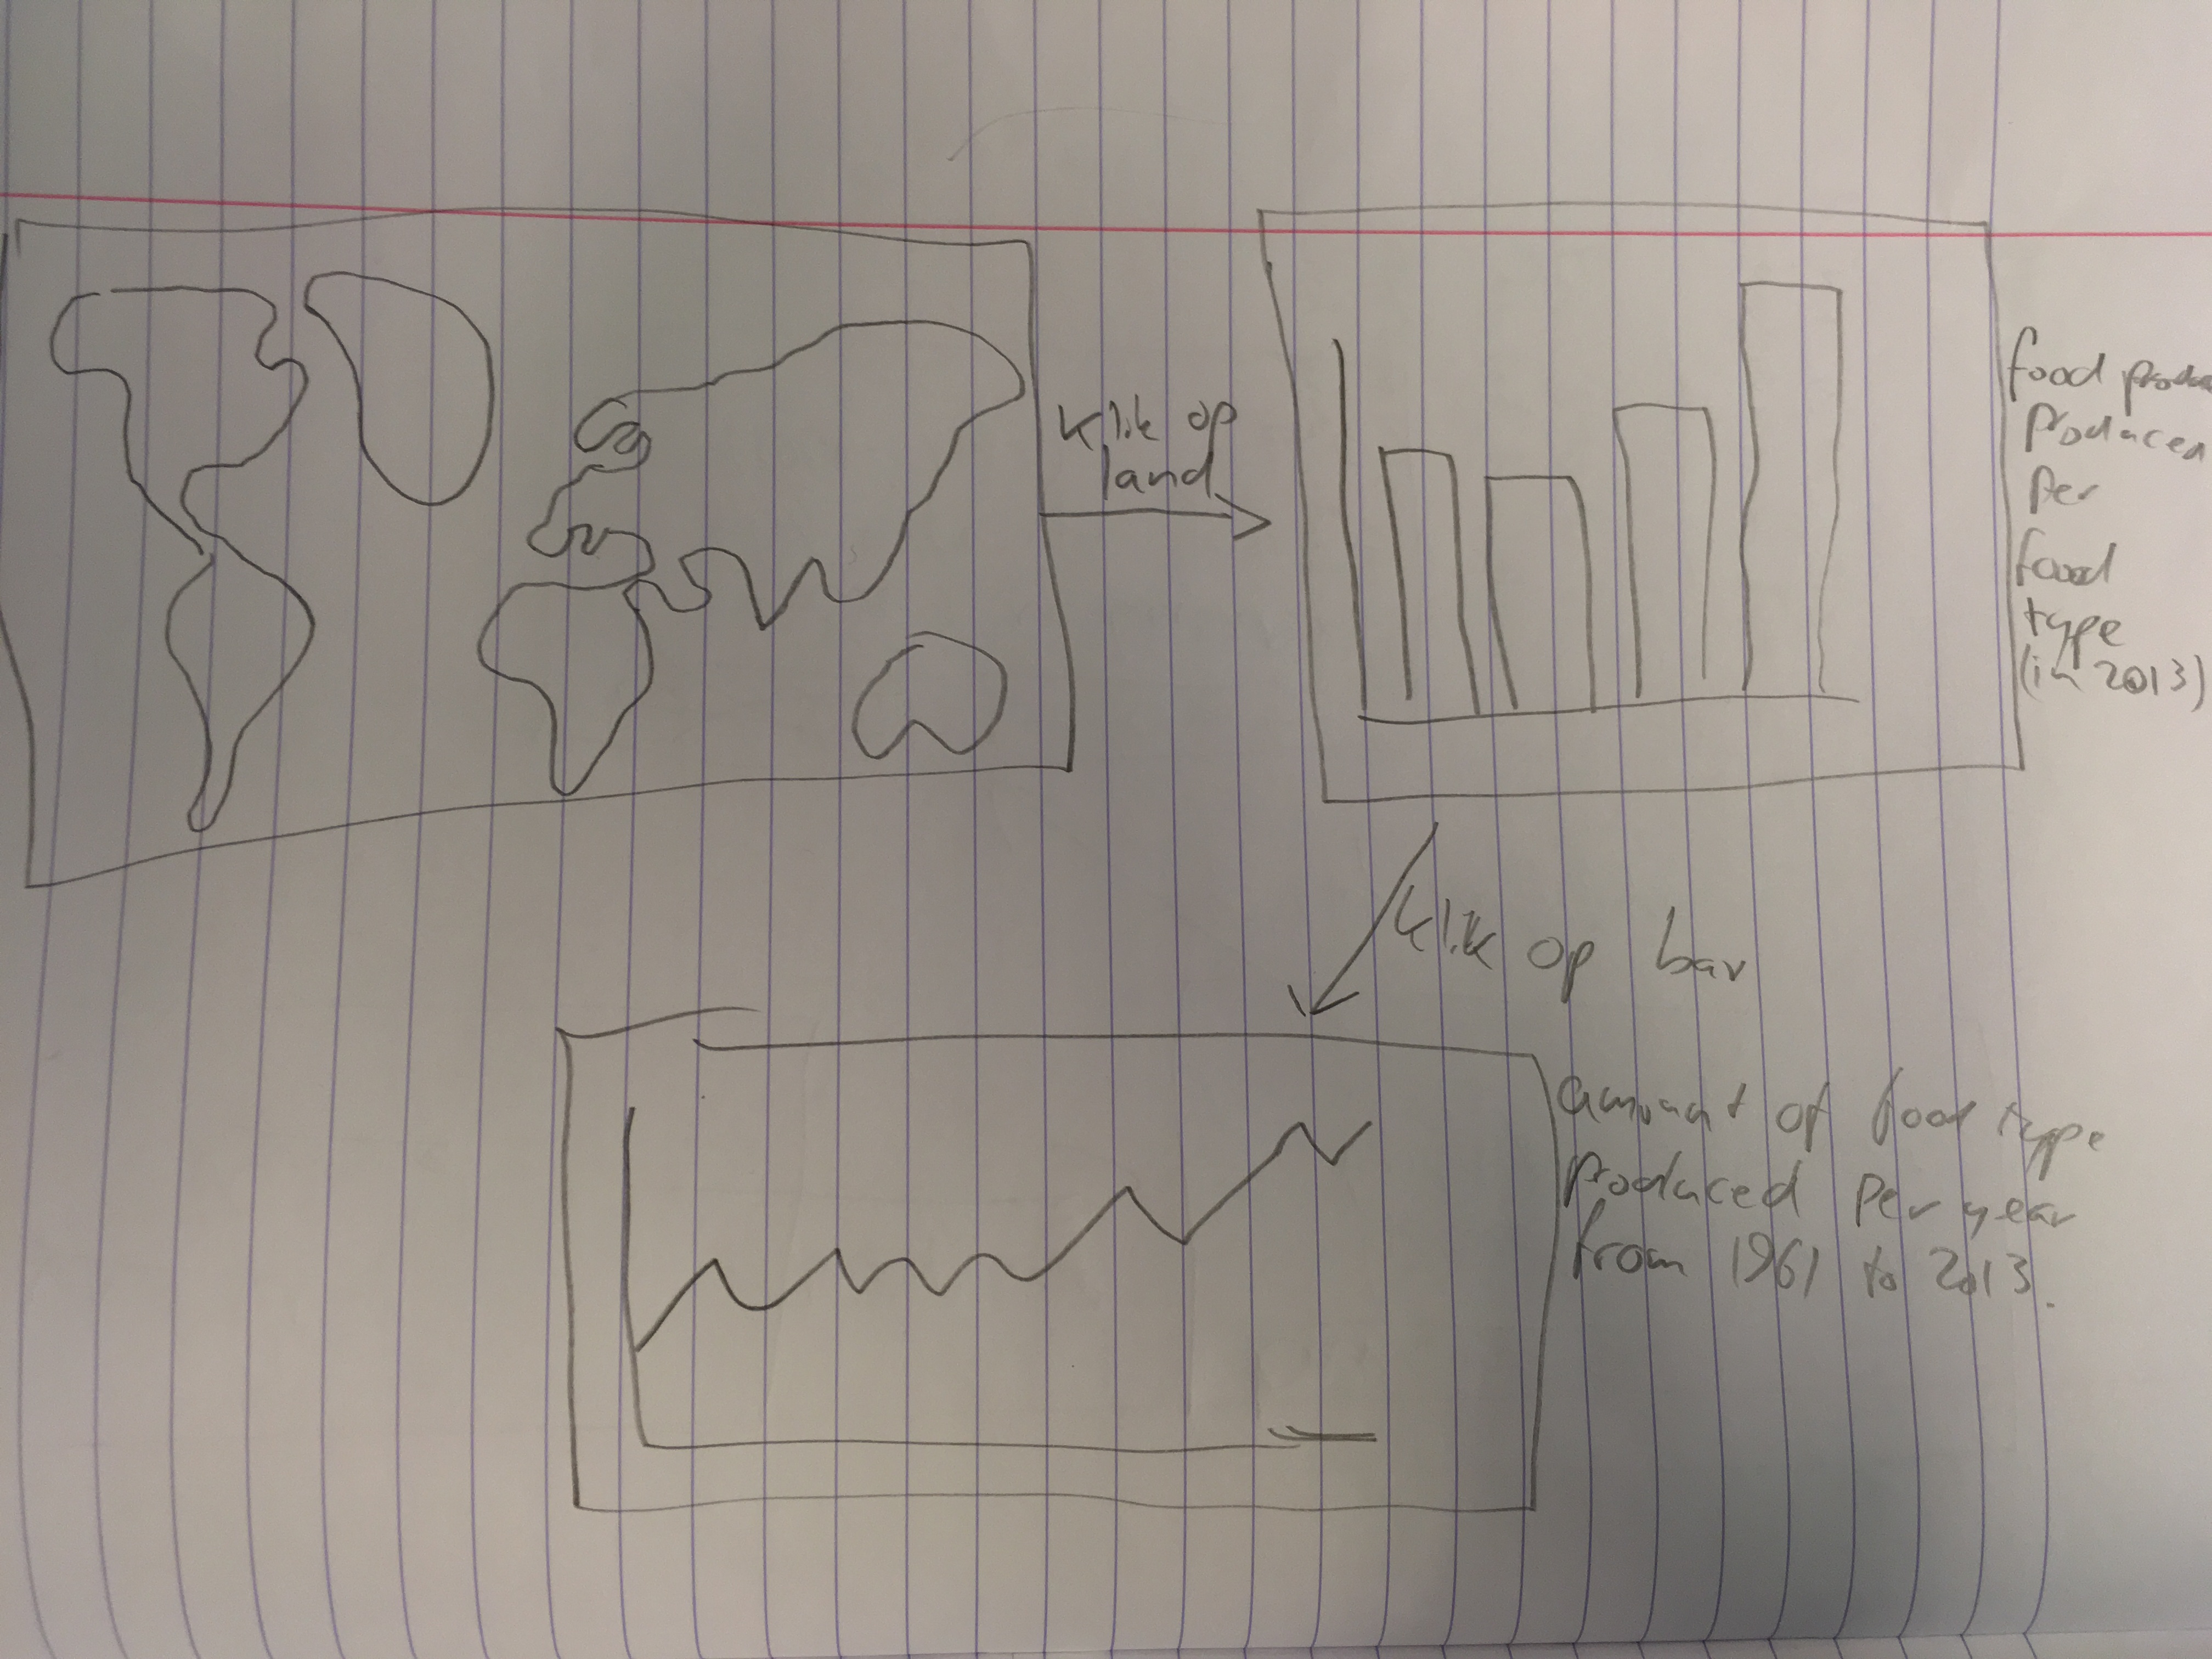 Klik op
land
food produ
Producer
Per
food
type
(in 2013)
klik op bar
amount of food type
Produced Per year
from 1961 to 2013.